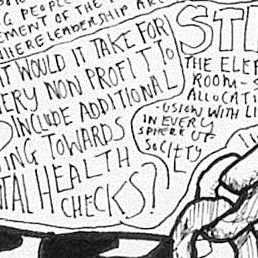 G PEOPLE
EMENT OF THE
WHERE LEADERSHIP AR
T WOULD IT TAKE FOR
VERY NON PROFIT TO
INCLUDE ADDITIONAL
ING TOWARDS
TAL HEALTH
CHECKS?
STI
THE ELEP
ROOM-S
ALLOCATI
USION WITH LI
IN EVERY
SPHERE OF
SOCIETY